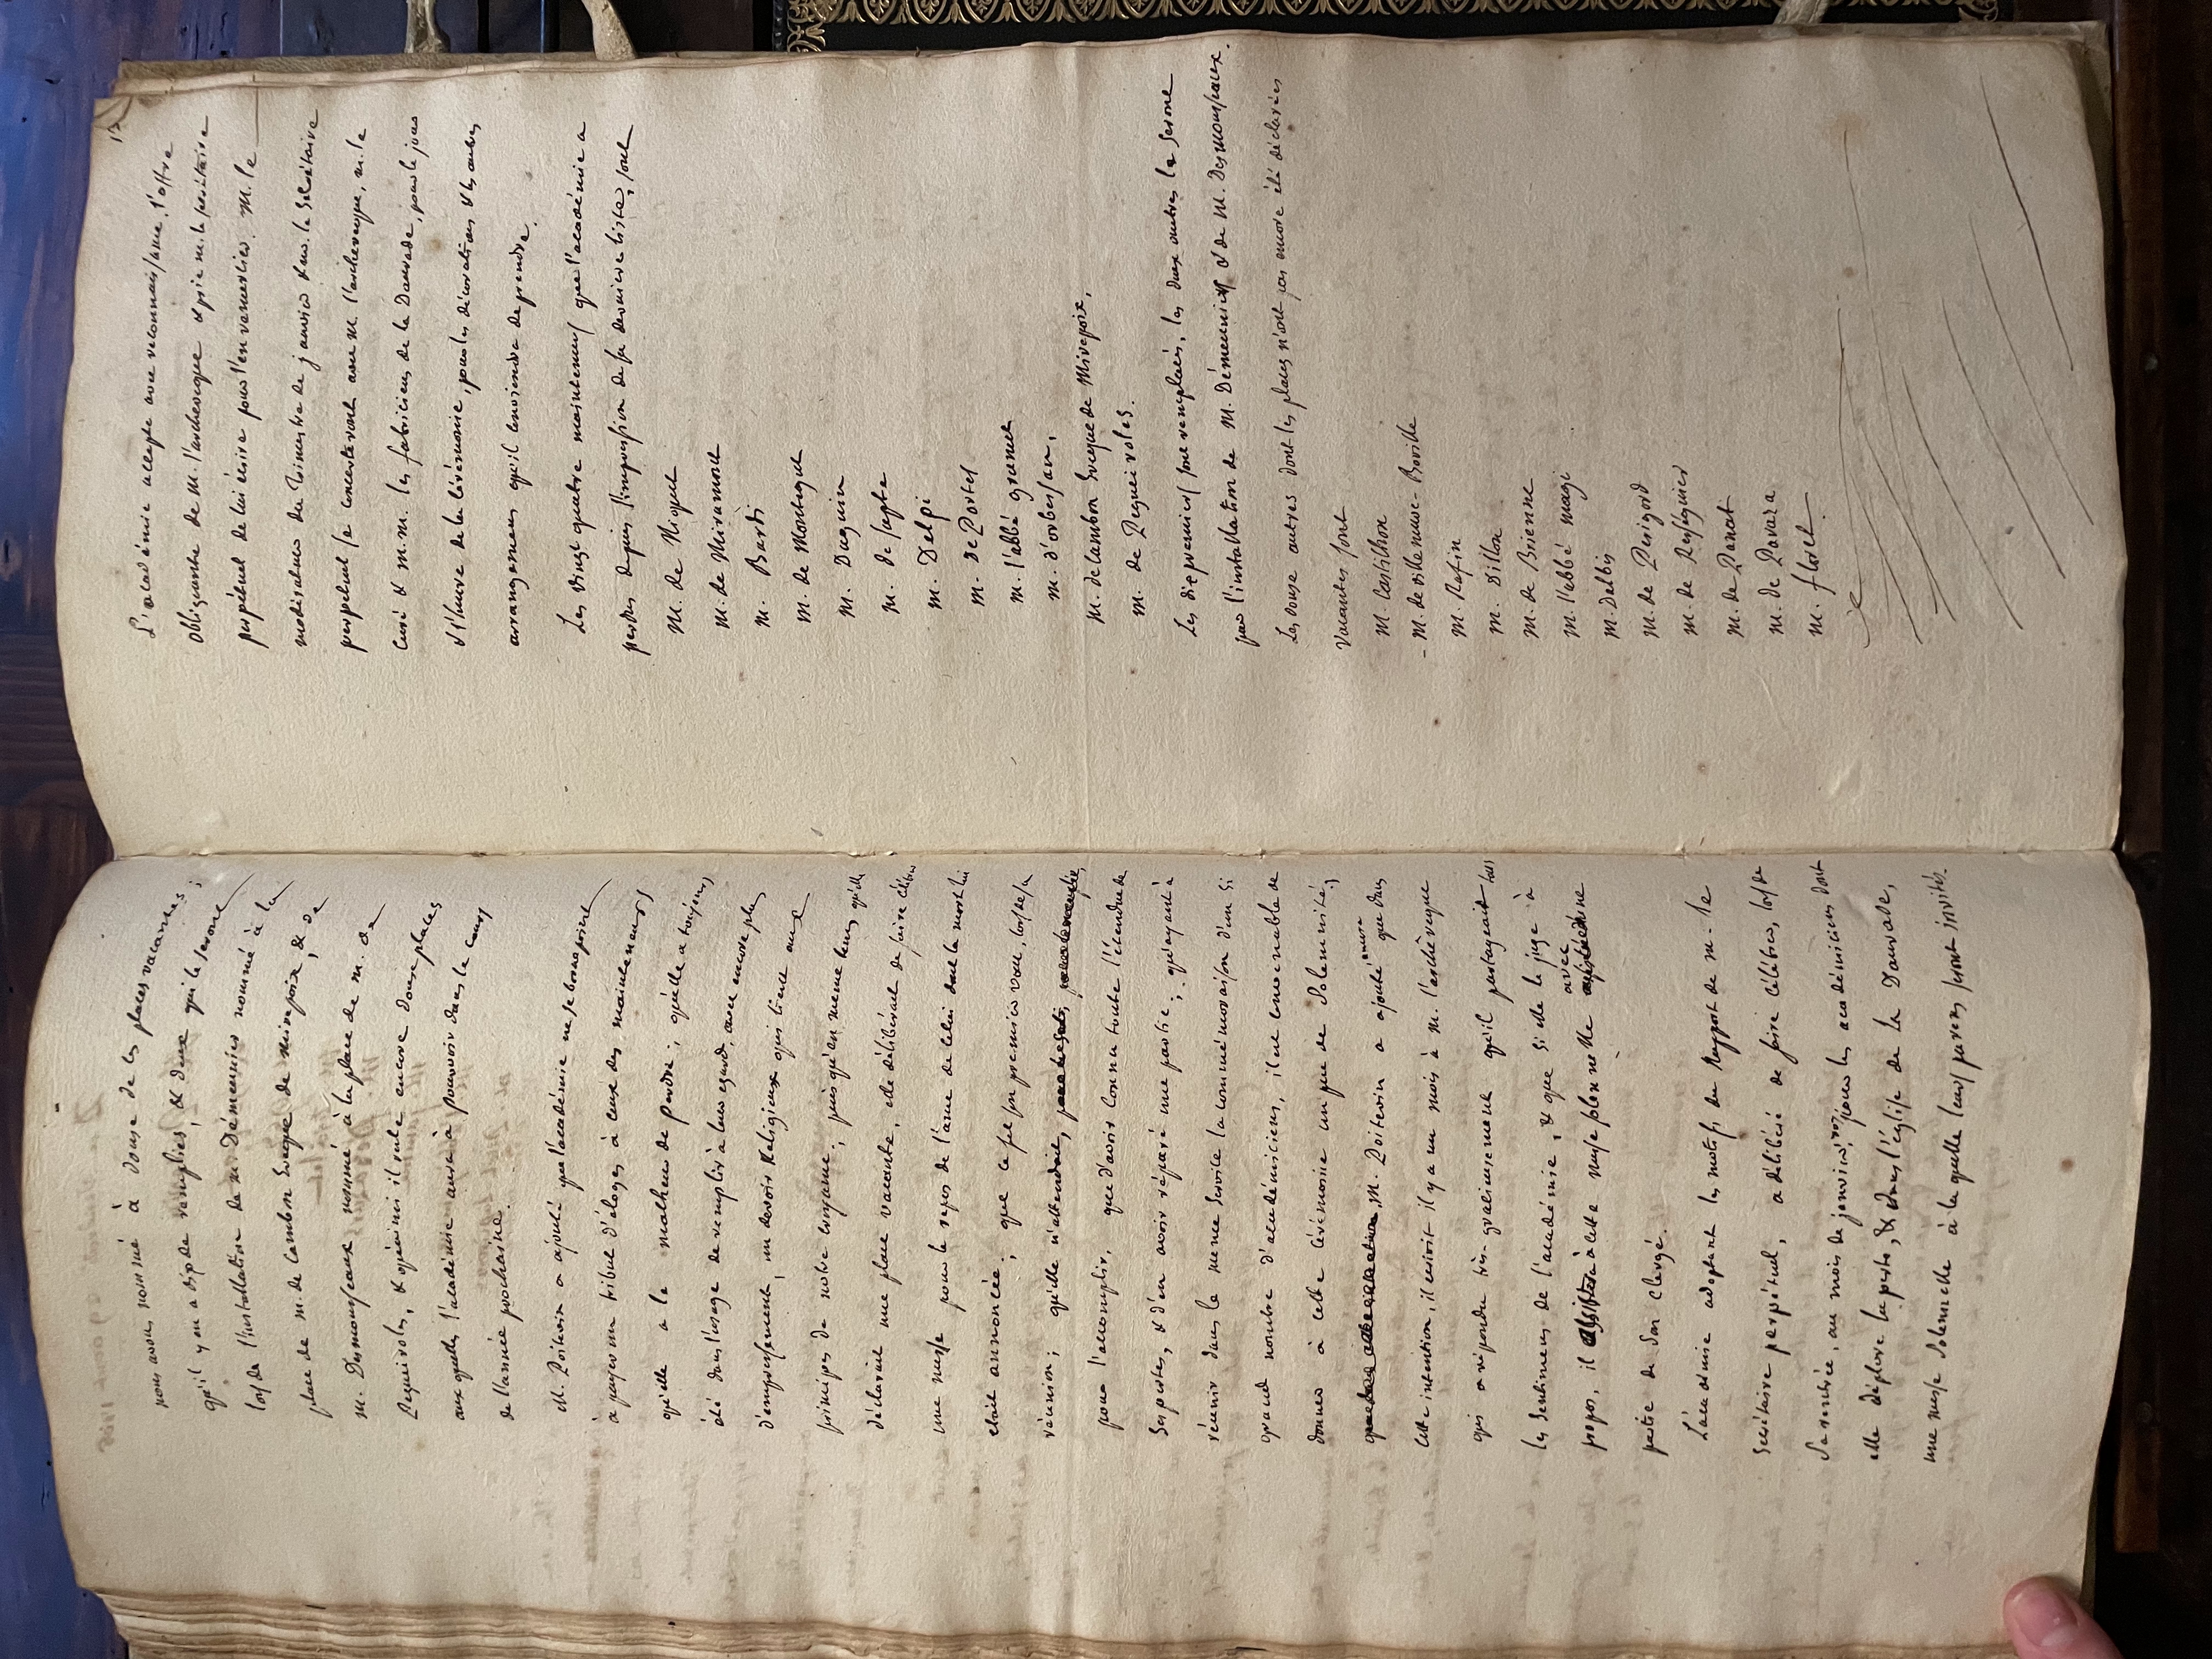 nous avons nommé à douse de ces places vacantes ;
qu'il y en a dix de remplies, & deux qui le seront
lors de l'installation de m. Démeunier nommé à la
place de m. de Cambon Evêque de mirepoix, & de
m. Desmousseaux nommé à la place de m. de
Reguirols, & qu'ainsi il reste encore douse places
aux quelles l'académie aura à pourvoir dans le cours
de l'année prochaine.
M. Poitevin a ajouté que l'académie ne se borna point
à payer un tribut d'éloges à ceux des mainteneurs
qu'elle a le malheur de perdre ; qu'elle a toujours
été dans l'usage de remplir à leur egard, avec encore plus
d'empressement, un devoir Religieux qui tient aux
principes de notre croyance ; puis qu'en meme tems qu'elle
déclarait une place vacante, elle délibérait de faire célébrer
une messe pour le repos de l'ame de celui dont la mort lui
etait annoncée ; que ce fut son premier vœu, lors de sa
réunion ; qu'elle n'attendait,
pour l'accomplir, que d'avoir connu toute l'étendue de
ses pertes, & d'en avoir réparé une partie ; qu'ayant à
réunir dans le meme service la commémoraison d'un si
grand nombre d'académiciens, il est convenable de
donner à cette cérémonie un peu de solemnité ;
M. Poitevin a ajouté encore que dans
cette intention, il écrivit il y a un mois à M. l'archevêque
qui a répondu très-gracieusement qu'il partageait tous
les sentimens de l'académie, & que si elle le juge à
propos, il assistera à cette messe solennelle avec une
partie de son clergé.
L'académie adoptant les motifs du Rapport de m. le
Secrétaire perpétuel, a délibéré de faire célébrer, lors de
sa rentrée, au mois de janvier, pour les académiciens dont
elle déplore la perte, & dans l'église de la Daurade,
une messe solemnelle à la quelle leurs parens seront invités.
13
L'académie accepte avec reconnaissance l'offre
obligeante de M. l'archevêque & prie m. le secrétaire
perpétuel de lui écrire pour l'en remercier. M. le
modérateur du trimestre de janvier & m. le Secrétaire
perpétuel se concerteront avec M. l'archevêque, m. le
curé & m.m. les fabriciens de la Daurade, pour le jour
& l'heure de la cérémonie, pour les décorations & les autres
arrangemens qu'il conviendra de prendre.
Les vingt quatre mainteneurs que l'académie a
perdus depuis l'impression de sa dernière liste, sont
M. de Niquet
M. de Miramont
M. Bardi
M. de Montegut
M. Daguin
M. de Sapte
M. Delpi
M. De Portes
M. l'abbé granet
M. d'orbessan,
M. de Cambon Evêque de Mirepoix,
M. de Reguirols.
Les dix premiers sont remplacés, les deux autres le seront
par l'installation de M. Démeunier & de M. Desmousseaux.
Les douse autres dont les places n'ont pas encore été déclarées
vacantes sont
M. Castilhon
- M. de villeneuve-Beville
M. Rafin
M. Dillon
M. de Brienne
M. l'abbé magi
M. Dalbis
M. de Périgord
M. de Rességuier
M. de Panat
M. de Pavara
M. floret.